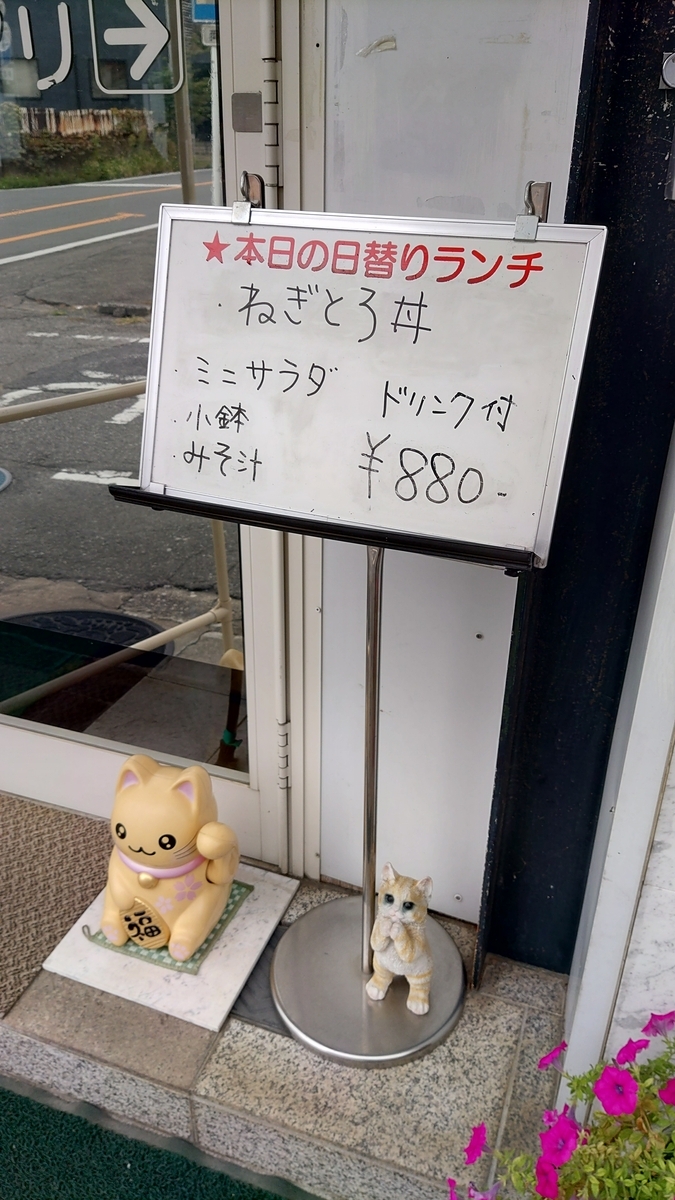 リ →
★本日の日替りランチ
・ねぎとろ丼
・ミニサラダ
・小鉢
・みそ汁
ドリンク付
¥880-
福